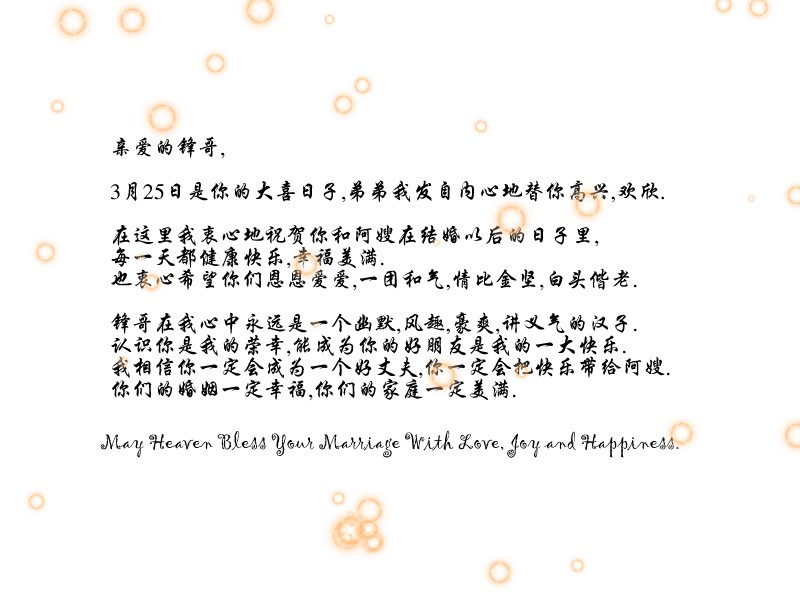 亲爱的锋哥,
3月25日是你的大喜日子,弟弟我发自内心地替你高兴,欢欣.
在这里我衷心地祝贺你和阿嫂在结婚以后的日子里,
每一天都健康快乐,幸福美满.
也衷心希望你们恩恩爱爱,一团和气,情比金坚,白头偕老.
锋哥在我心中永远是一个幽默,风趣,豪爽,讲义气的汉子.
认识你是我的荣幸,能成为你的好朋友是我的一大快乐.
我相信你一定会成为一个好丈夫,你一定会把快乐带给阿嫂.
你们的婚姻一定幸福,你们的家庭一定美满.
May Heaven Bless Your Marriage With Love, Joy and Happiness.